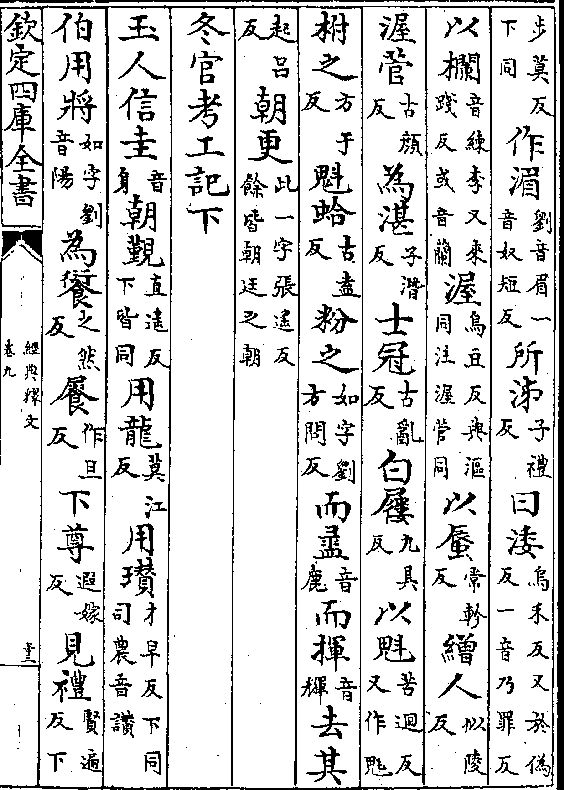 步莫反下同作湄劉音眉一音奴短反所沸子禮反曰涹烏禾反又於偽反一音乃罪反
以欄音練李又來踐反或音蘭渥烏豆反與漚同注渥菅同以蜃常軫反繒人似陵反
渥菅古顔反為湛子潛反士冠古亂反白屨九具反以魁苦迴反又作𣁬
柎之方于反魁蛤古盍反粉之如字劉方問反而盝音鹿而揮音輝去其
起吕反朝更此一字張遙反餘皆朝廷之朝
冬官考工記下
玉人信圭音身朝覲直遙反下皆同用龍莫江反用瓚才早反下同司農音讚
伯用將如字劉音陽為饡之然反餍作旦反下尊遐嫁反見禮賢遍反下
欽定四庫全書
經典釋文
卷九